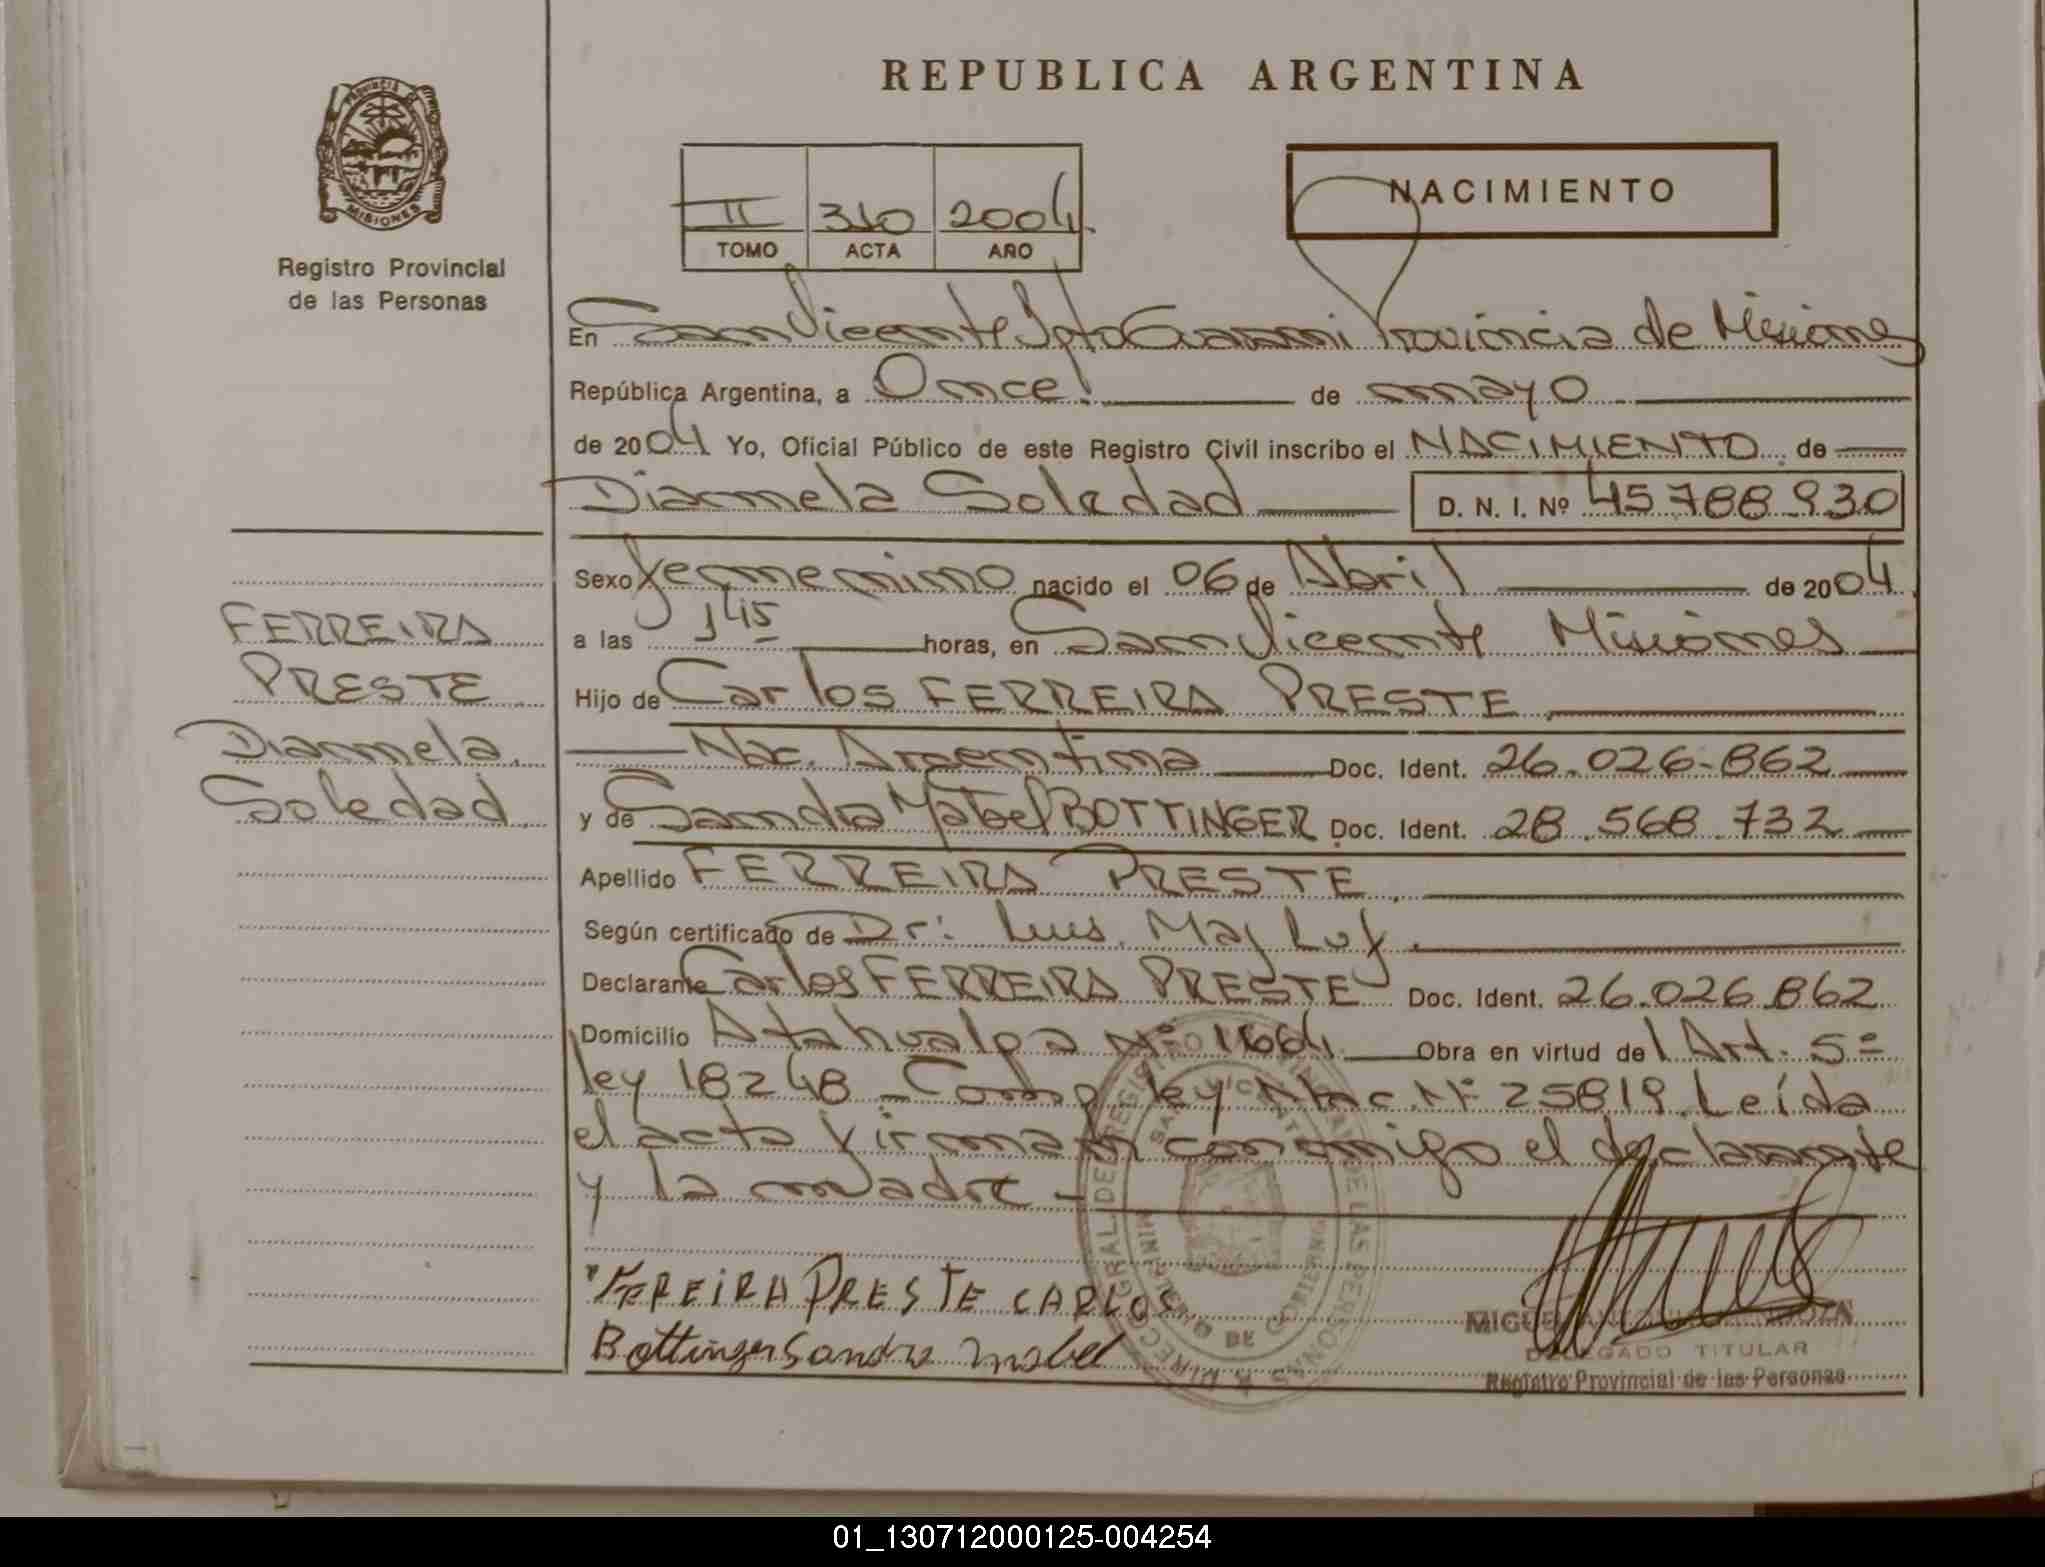 REPUBLICA ARGENTINA
PROVINCIA DE
MISIONES
Registro Provincial
de las Personas
II 310 2004
TOMO ACTA AÑO
NACIMIENTO
En San Vicente Dpto Guarani Provincia de Misiones
República Argentina, a Once de mayo
de 2004 Yo, Oficial Público de este Registro Civil inscribo el NACIMIENTO de
Dianmela Soledad D. N. I. Nº 45.788.930
Sexo femenino nacido el 06 de Abril de 2004
a las 145 horas, en San Vicente Misiones
Hijo de Carlos FERREIRA PRESTE
Nac. Argentina Doc. Ident. 26.026.862
y de Sandra Mabel BOTTINGER Doc. Ident. 28.568.732
Apellido FERREIRA PRESTE
Según certificado de Dr: Luis
Declarante Carlos FERREIRA PRESTE Doc. Ident. 26.026.862
Domicilio Atahualpa Nº 1664 Obra en virtud del Art. 5º
ley 18248 - Comp. ley Nac. Nº 25819. Leída
el acta firman conmigo el declarante
y la madre -
FERREIRA
PRESTE
Dianmela
Soledad
FEREIRA PRESTE CARLOS
Bottinger Sandra Mabel
DELEGADO TITULAR
Registro Provincial de las Personas
01_130712000125-004254